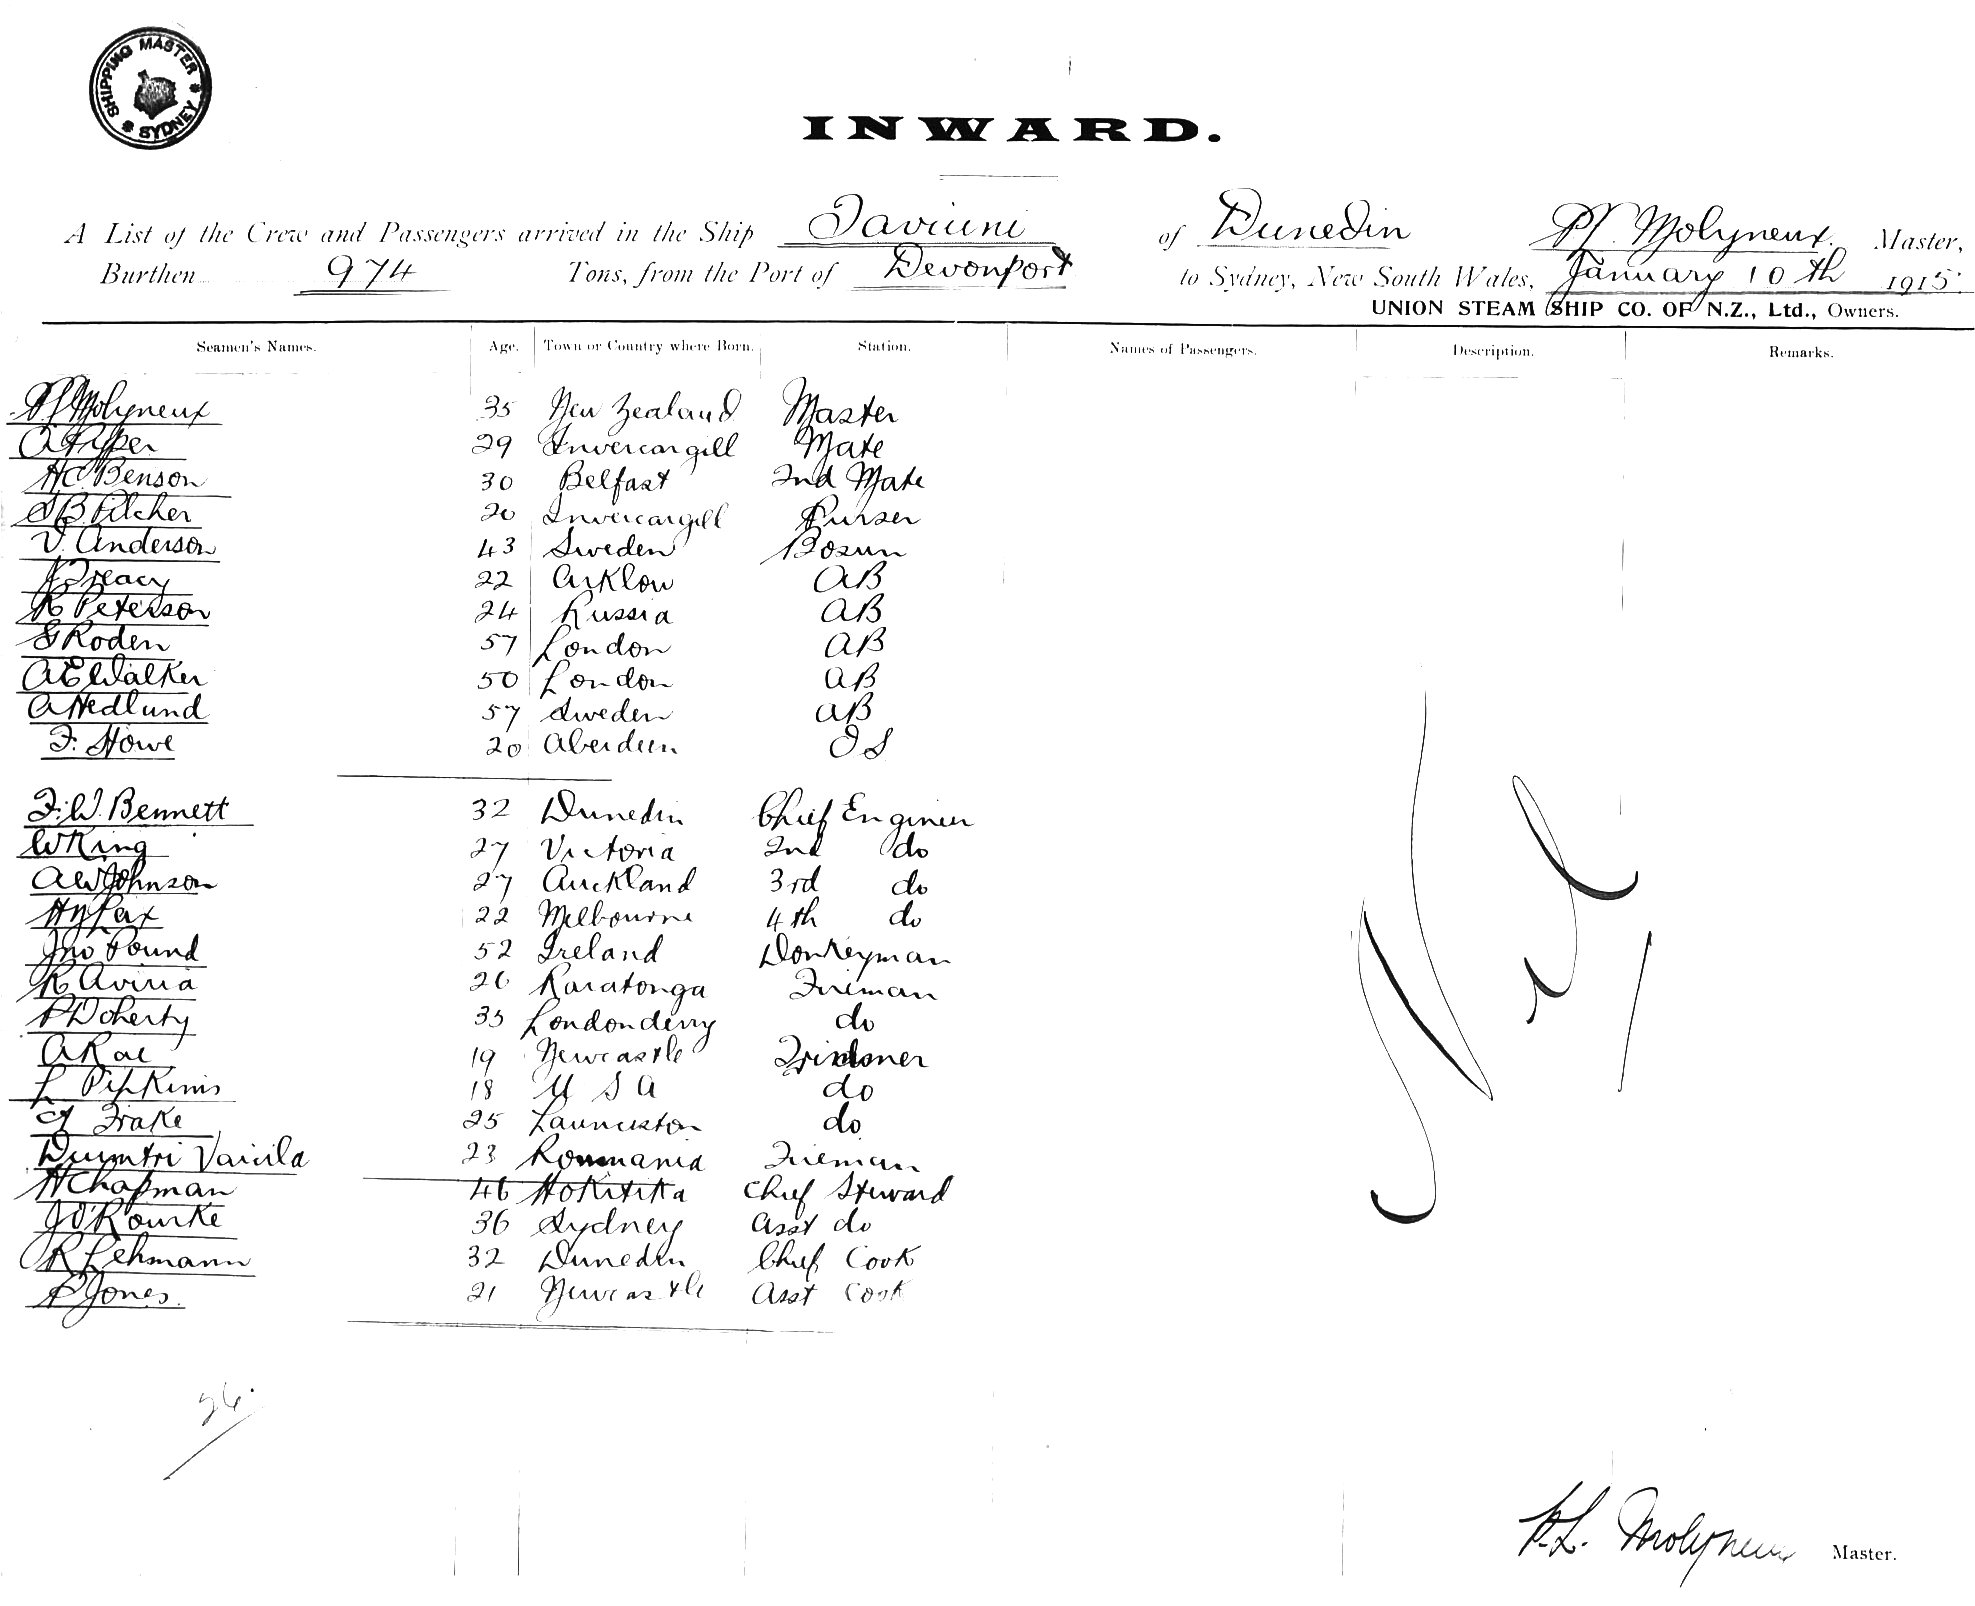 SHIPPING MASTER
SYDNEY
INWARD.
A List of the Crew and Passengers arrived in the Ship Taviuni of Dunedin P L Molyneux Master,
Burthen 974 Tons, from the Port of Devonport to Sydney, New South Wales, January 10th 1915
UNION STEAM SHIP CO. OF N.Z., Ltd., Owners.
Seamen's Names. Age. Town or Country where Born. Station. Names of Passengers. Description. Remarks.
P L Molyneux 35 New Zealand Master
A Piper 29 Invercargill Mate
H C Benson 30 Belfast 2nd Mate
S B Pilcher 20 Invercargill Purser
V. Anderson 43 Sweden Bosun
J Treacy 22 Arklow AB
R Peterson 24 Russia AB
S Roden 57 London AB
A E Walker 50 London AB
A Hedlund 57 Sweden AB
F. Howe 20 Aberdeen O S
F. W. Bennett 32 Dunedin Chief Engineer
W King 27 Victoria 2nd do
A W Johnson 27 Auckland 3rd do
22 Melbourne 4th do
Jno Pound 52 Ireland Donkeyman
R Aviria 26 Raratonga Fireman
P Doherty 35 Londonderry do
A Rae 19 Newcastle Trimmer
L Pipkins 18 U S A do
Frake 25 Launceston do
Dumitri Vaivila 23 Roumania Fireman
H Chapman 46 Hokitika Chief Steward
J O'Rourke 36 Sydney Asst do
R Lehmann 32 Dunedin Chief Cook
P Jones. 21 Newcastle Asst Cook
Nil
26
P.L. Molyneux Master.